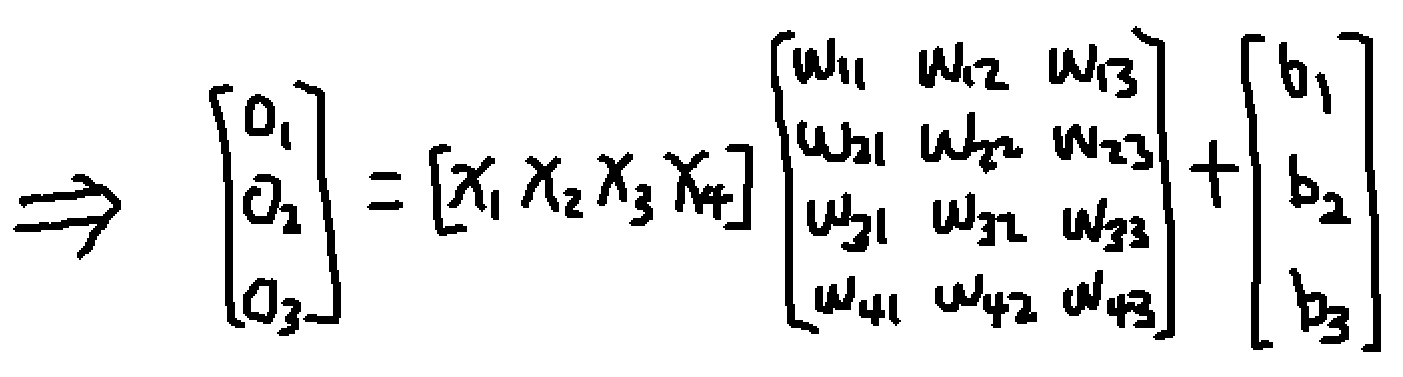 ⇒ [o₁ o₂ o₃] = [x₁ x₂ x₃ x₄] [w₁₁ w₁₂ w₁₃ w₂₁ w₂₂ w₂₃ w₃₁ w₃₂ w₃₃ w₄₁ w₄₂ w₄₃] + [b₁ b₂ b₃]